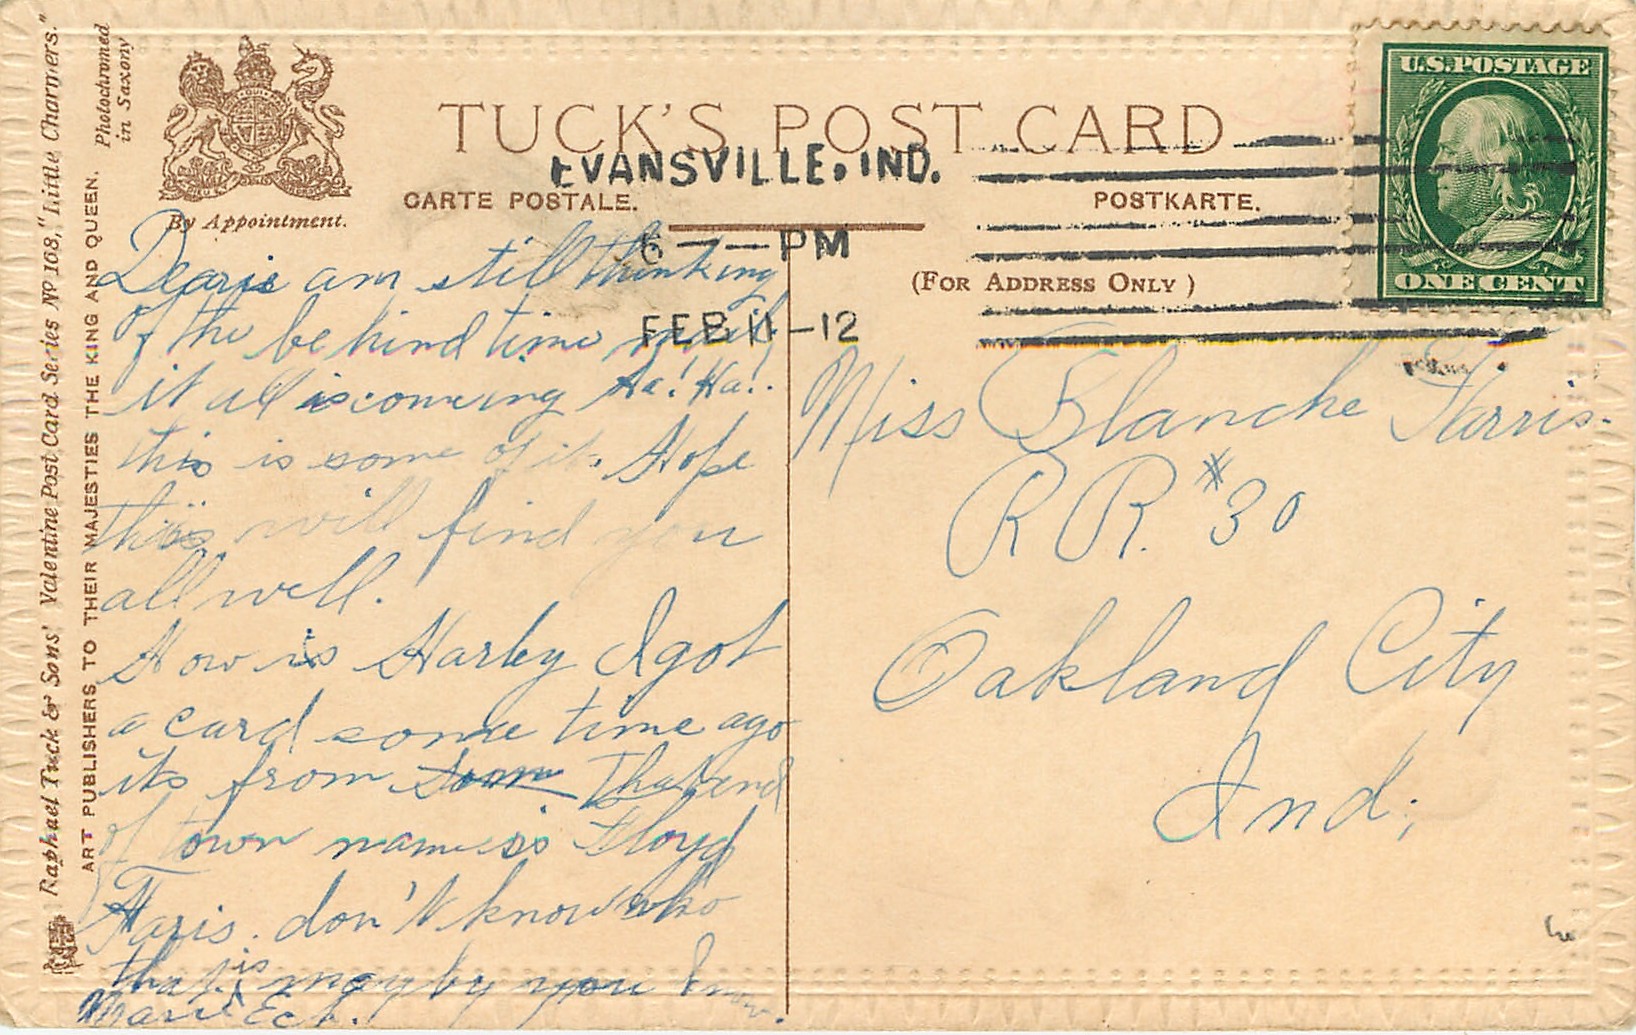 TUCK'S POST CARD
CARTE POSTALE.
POSTKARTE.
(FOR ADDRESS ONLY)
By Appointment.
Photochromed
in Saxony
Raphael Tuck & Sons' Valentine Post Card Series Nº 108, "Little Charmers."
ART PUBLISHERS TO THEIR MAJESTIES THE KING AND QUEEN.
EVANSVILLE. IND.
6 — PM
FEB 11-12
U.S. POSTAGE
ONE CENT
Dearie am still thinking
of the behind time
it all is comeing Ha! Ha!.
this is some of it. Hope
this will find you
all well.
How is Harley I got
a card some time ago
its from That end
of town name is Floyd
Faris. don't know who
that is mayby you know.
Marie
Miss Blanche Harris.
RR. #30
Oakland City
Ind;